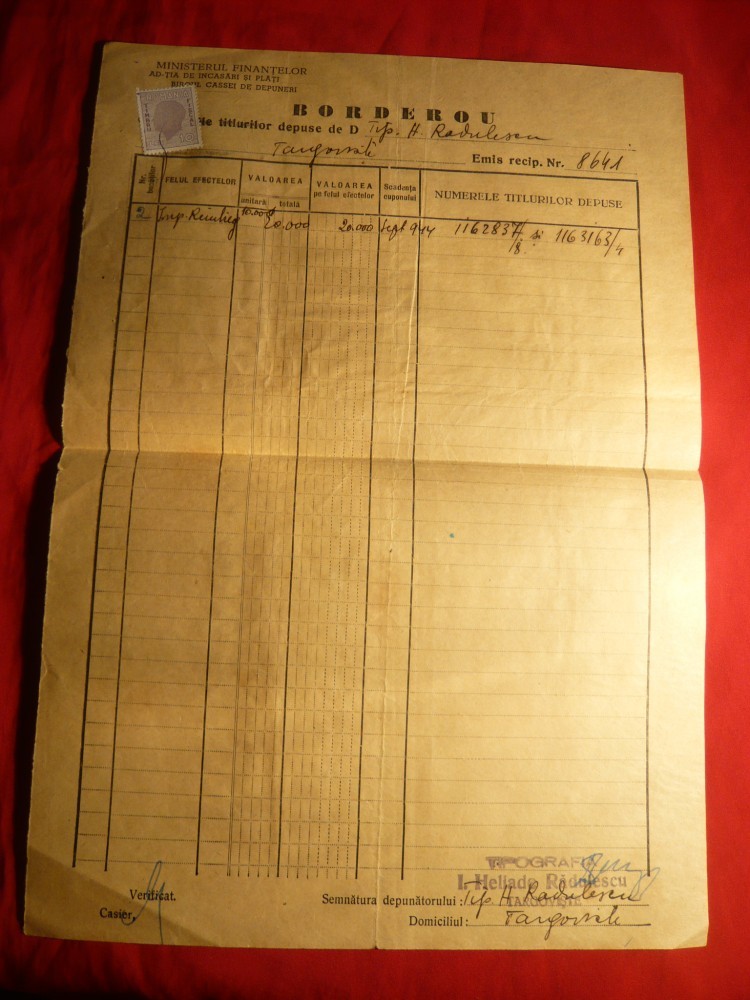 MINISTERUL FINANȚELOR
AD-ȚIA DE INCASĂRI ȘI PLĂȚI
BIROUL CASSEI DE DEPUNERI
BORDEROU
titlurilor depuse de D Tip. H. Radulescu
Targoviste
Emis recip. Nr. 8641
FELUL EFECTELOR
VALOAREA
unitară
totală
VALOAREA
pe felul efectelor
Scadența
cuponului
NUMERELE TITLURILOR DEPUSE
2 Imp. Reintreg 10.000 20.000 20.000 Sept 944 1162837/8 și 1163163/4
TIPOGRAFIA
I. Heliade Rădulescu
TARGOVIȘTE
Verificat.
Casier,
Semnătura depunătorului: Tip. H. Radulescu
Domiciliul: Targoviste